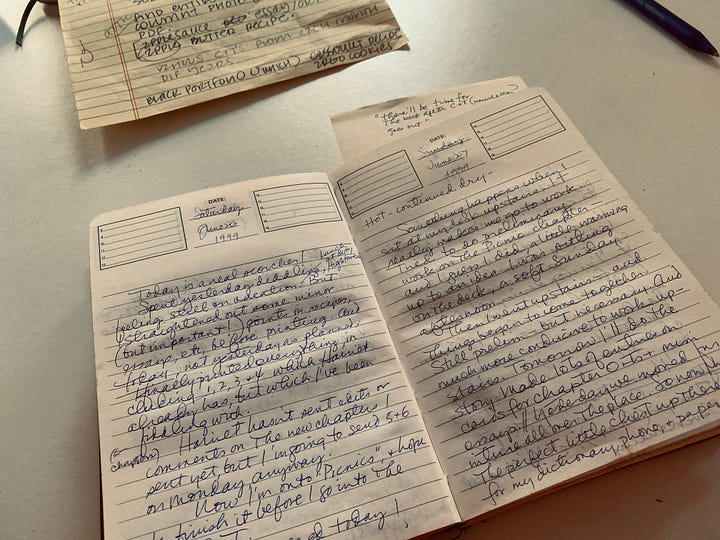 AND ENTIRE
COLUMN? PHOTO
PDF.
APPLESAUCE ESSAY
APPLE BUTTER RECIPE.
FROM EACH MONTH
DIF YEARS
BLACK PORTFOLIO (ZINCK) CONSULT RECIPE
COOKIES
"There'll be time for
the book after
goes out"
DATE:
Saturday
June 26
1999
Today is a real scorcher!
Spent yesterday diddling,
feeling still on vacation. But
straightened out some minor
(but important!) points in recipes,
essays, etc, before printing. And
today, not yesterday as planned,
finally printed everything in
cluding 1, 2, 3, + 4 which Harriet
already has, but which I've been
fiddling with.
Harriet hasn't sent edits or
comments on the new chapters I
(chapters)
sent yet, but I'm going to send 5+6
on Monday, anyway.
Now I'm onto "Picnics" + hope
to finish it before I go into the
today!
DATE:
Sunday
June 27
1999
Hot - continued dry -
Something happens when I
sit at my desk upstairs. It
really makes me go to work.
I need to do preliminary
work on the Picnic chapter -
and I guess I did a little warming
up to an idea I was outlining
on the deck, a soft Sunday
afternoon.
Then I went upstairs - and
things began to come together.
Still prelim - but necessary. And
much more conducive to work up-
stairs. Tomorrow I'll do the
story. Made lots of entries on
cards for chapter O. T. + mini
essays! Yesterday we moved
niture all over the place. So now
the perfect little chest up there
for my dictionary, phone, + paper